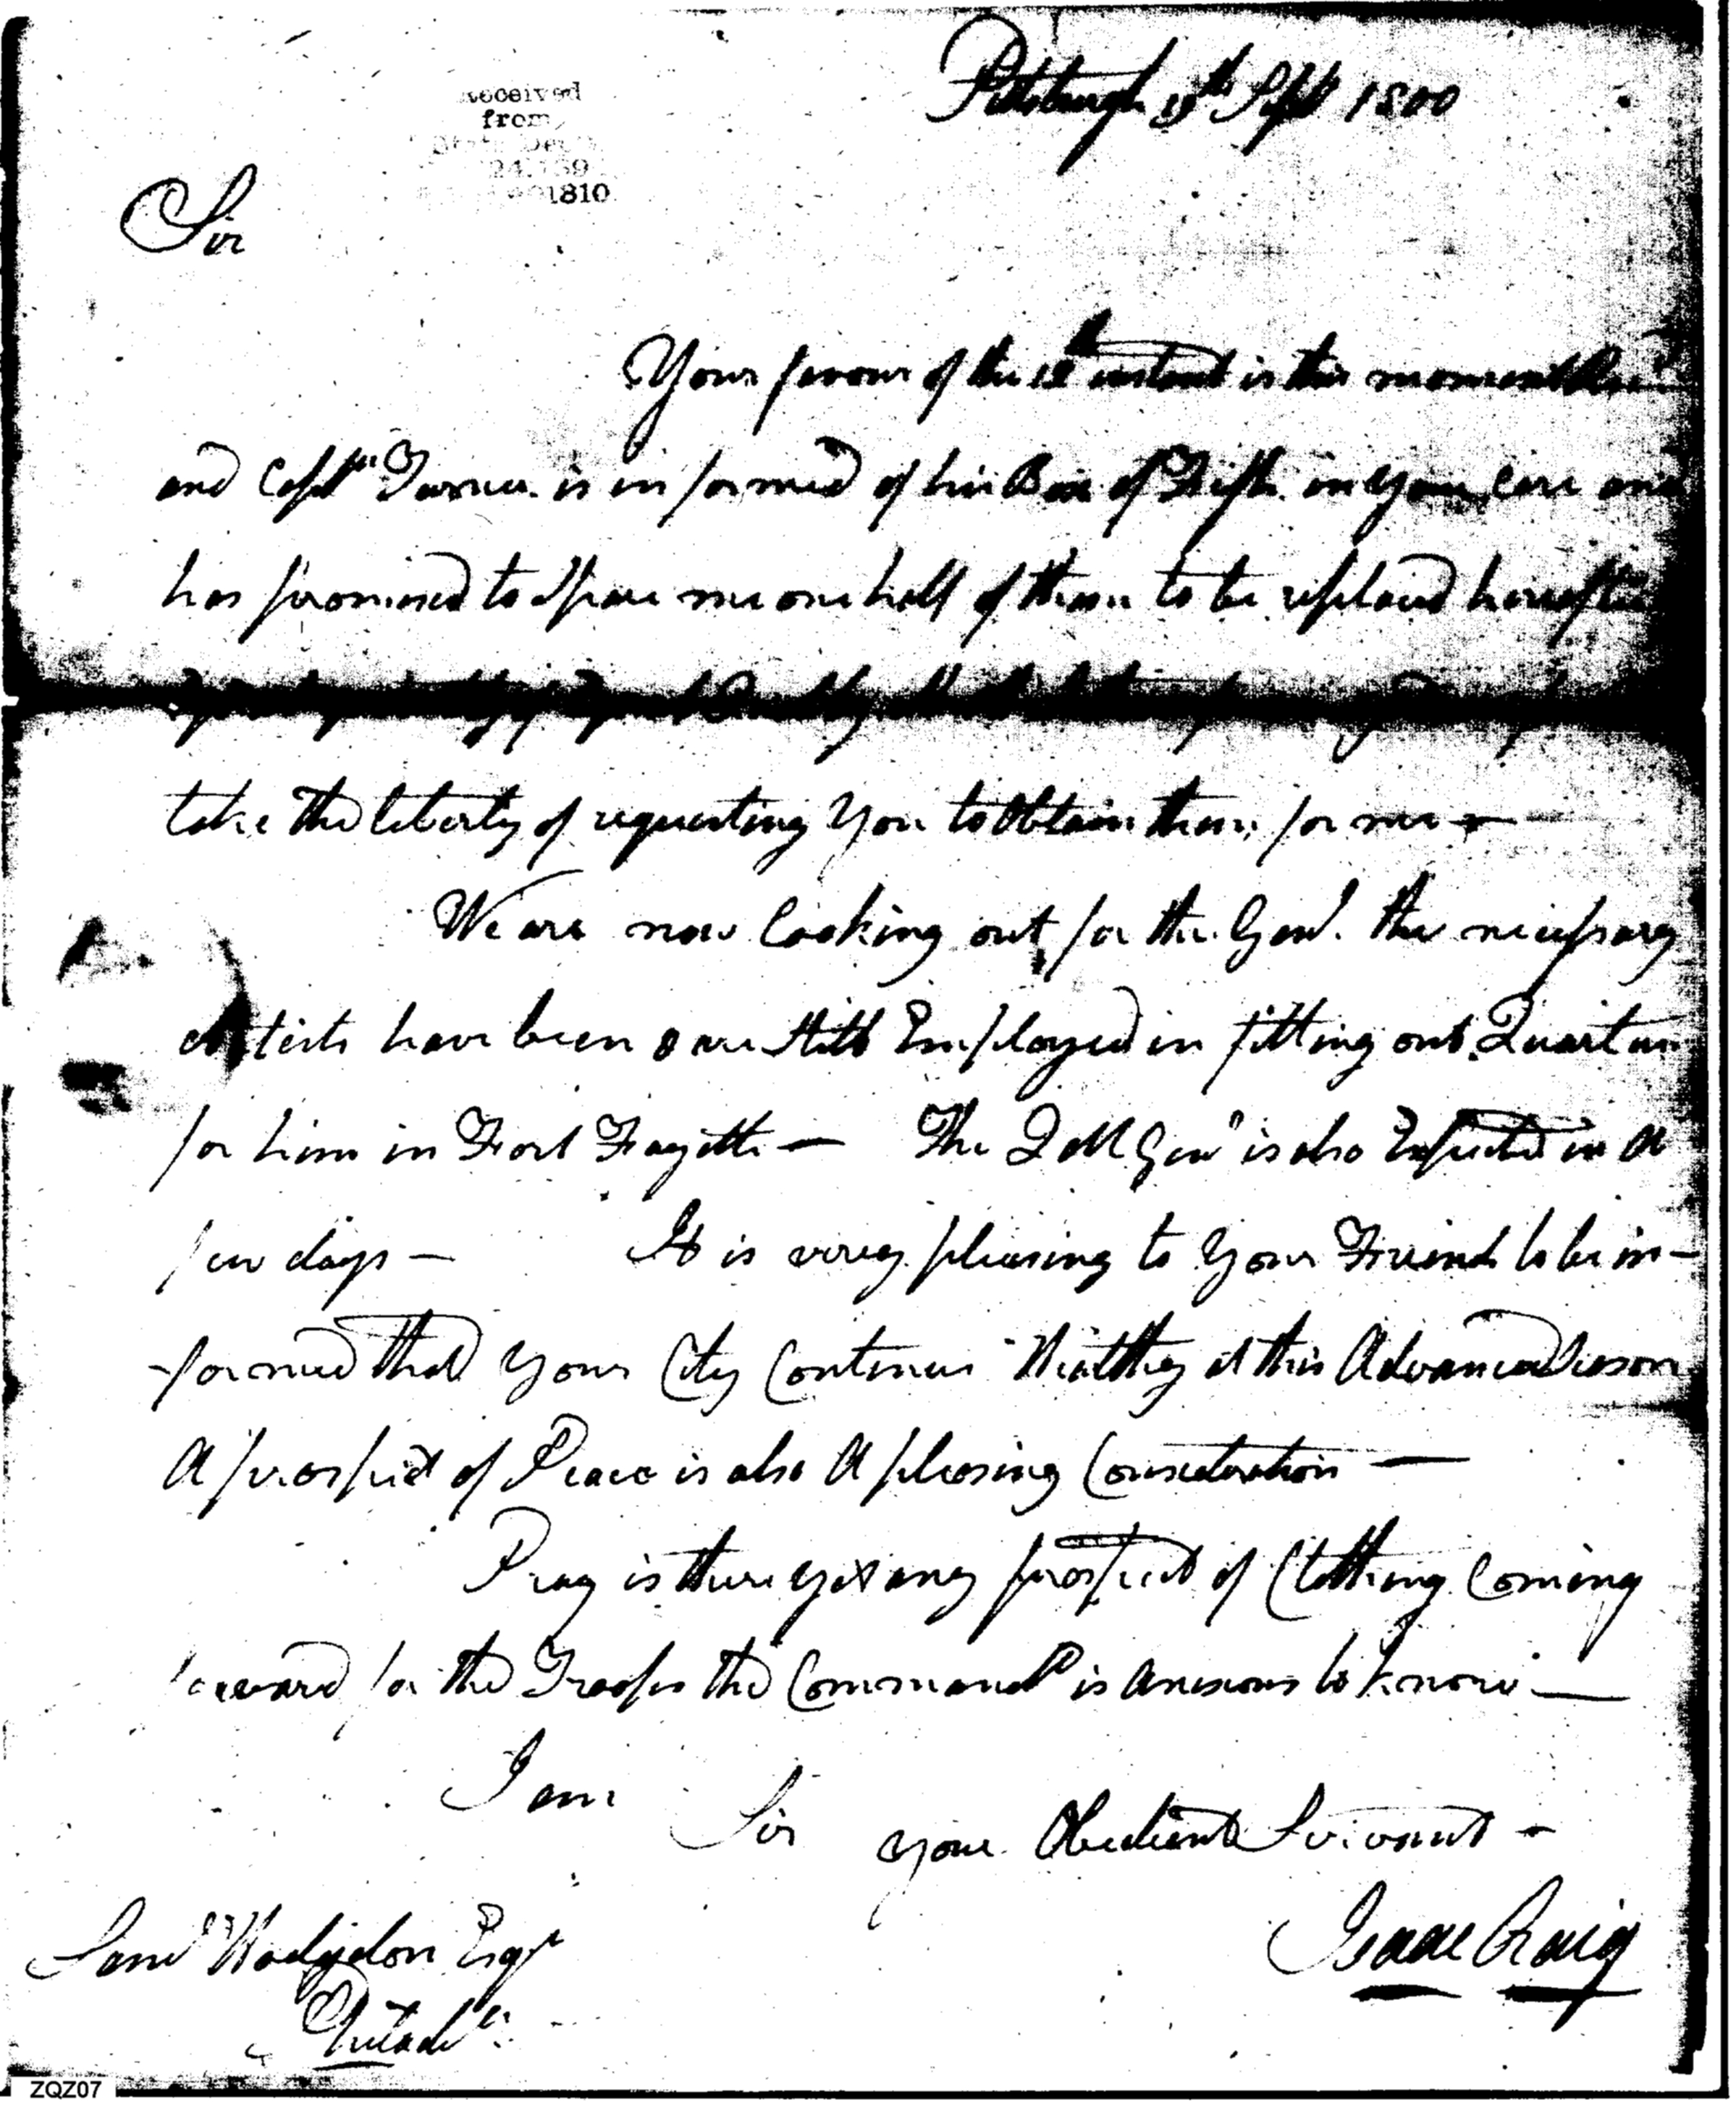 Pittsburgh Sept 1800
received
from
1810
Sir
Your favour of the instant is this moment
and Capt Turner is informed of his Box of in your Care and
has promised to Spare me one half of them to be replaced hereafter
take the liberty of requesting You to Obtain them for me —
We are now looking out for the Genl. the necessary
Artists have been & are Still Employed in fitting out Quarters
for him in Fort Fayette — The Q M Genl is also Expected in A
few days — It is very pleasing to Your Friends to be in-
-formed that Your City Continues Healthy at this Advanced Season
A prospect of Peace is also A pleasing Consideration —
Pray is there yet any prospect of Clothing Coming
forward for the Troops the Command is anxious to know —
I am Sir your Obedient Servant —
Isaac Craig
Saml Hodgdon Esqr
Philada
ZQZ07